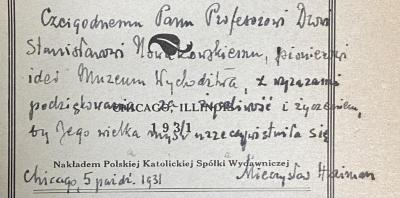 Czcigodnemu Panu Profesorowi Drowi
Stanisławowi Nowakowskiemu, pionierowi
idei Muzeum Wychodźtwa, z wyrazami
podziękowania za życzliwość i życzeniem,
CHICAGO, ILLINOIS
by Jego wielka myśl urzeczywistniła się
1931
Nakładem Polskiej Katolickiej Spółki Wydawniczej
Chicago, 5 paźdz. 1931 Mieczysław Haiman